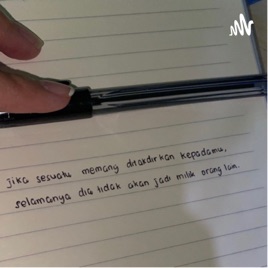 jika sesuatu memang ditakdirkan kepadamu,
selamanya dia tidak akan jadi milik orang lain.